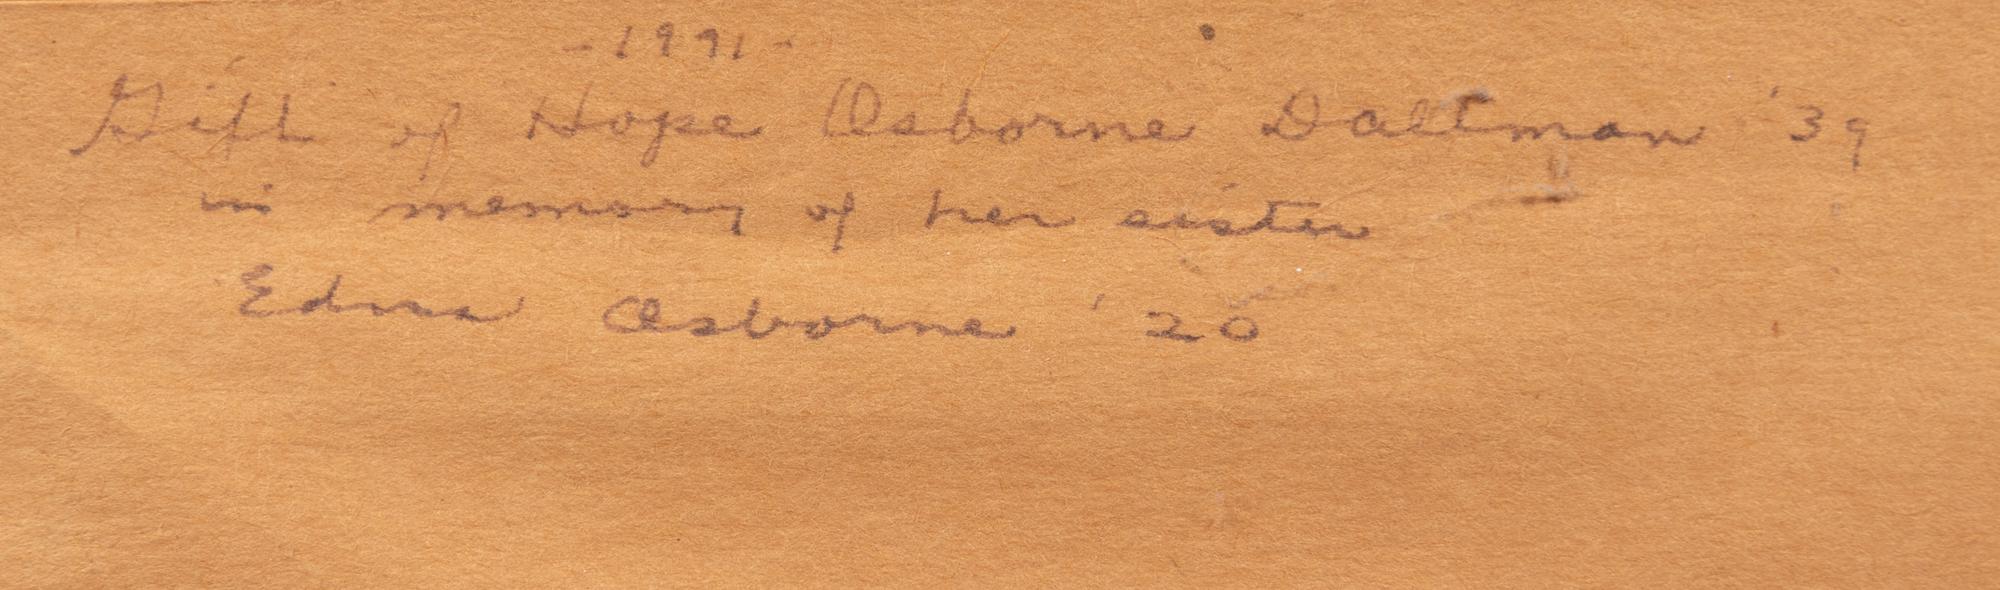 - 1991 -
Gift of Hope Osborne Daltman '39
in memory of her sister
Edna Osborne '20